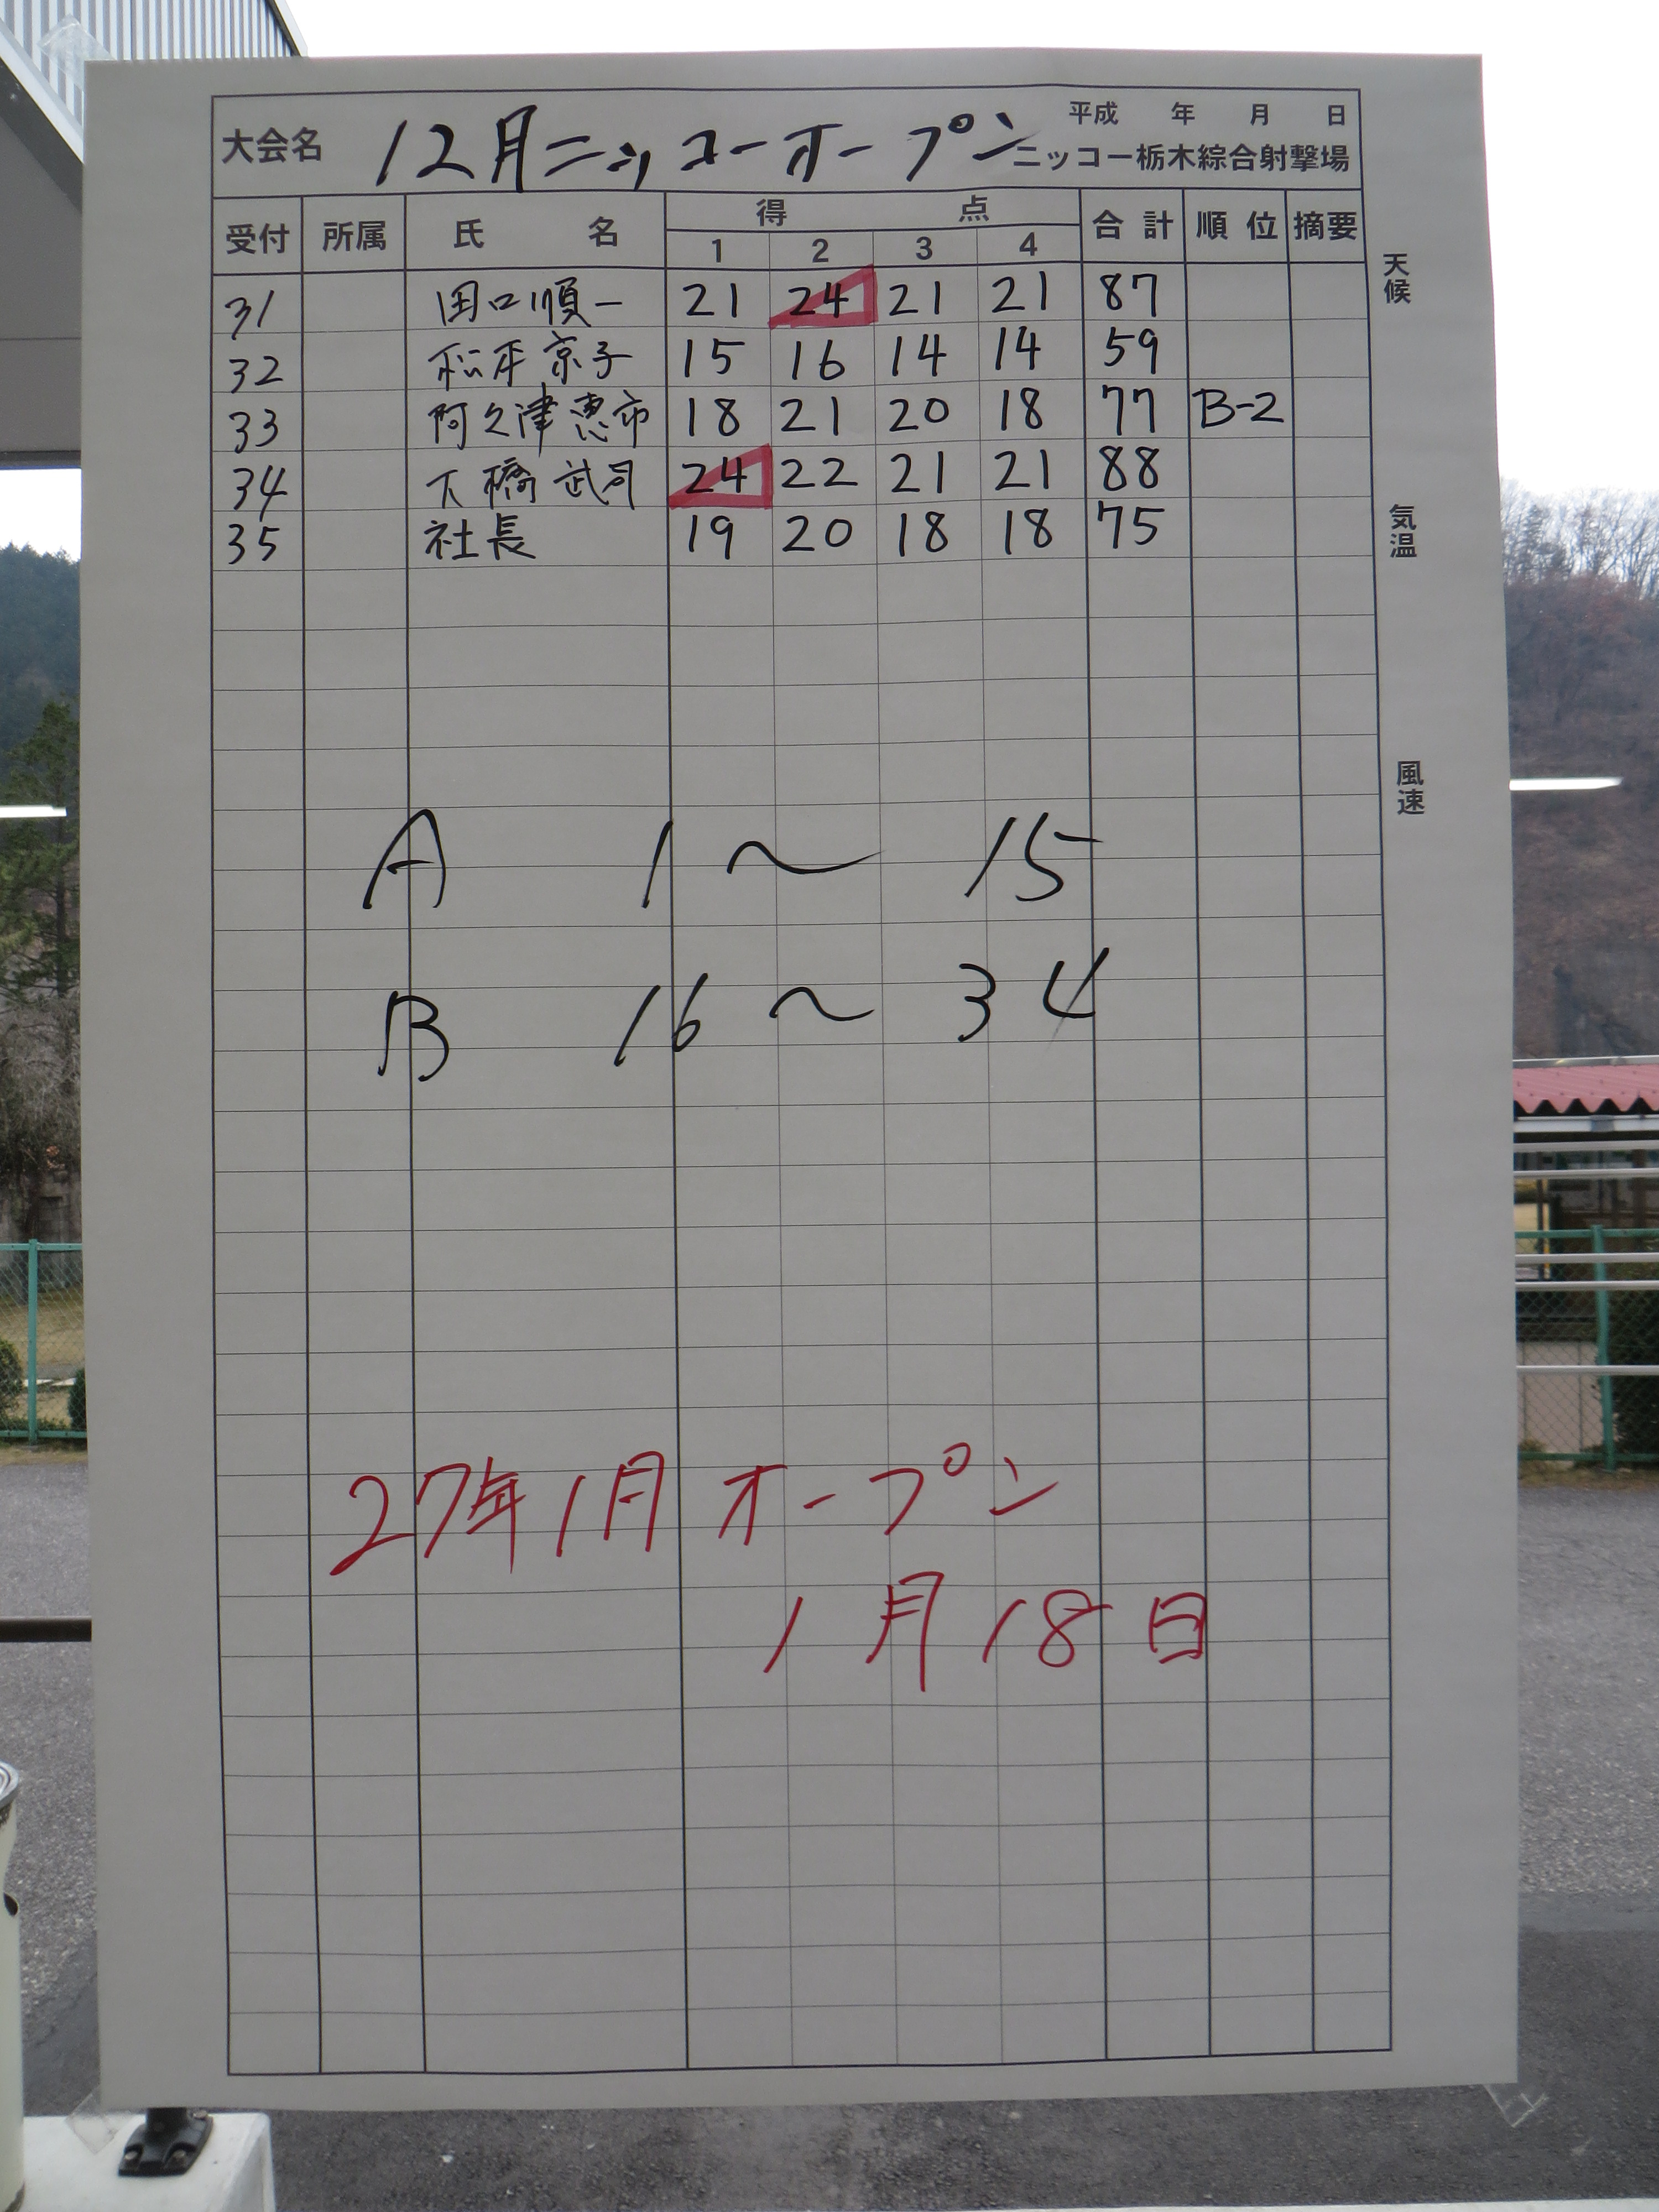 平成 年 月 日
大会名 12月ニッコーオープン ニッコー栃木綜合射撃場
受付 所属 氏 名 得 点 合計 順位 摘要
1 2 3 4
31 田口順一 21 24 21 21 87
32 松本京子 15 16 14 14 59
33 阿久津恵市 18 21 20 18 77 B-2
34 大橋武司 24 22 21 21 88
35 社長 19 20 18 18 75
A 1〜15
B 16〜34
27年1月オープン
1月18日
天候
気温
風速